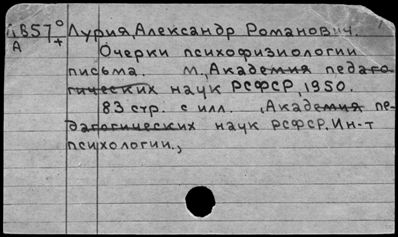 4857° Лурия, Александр Романович.
А + Очерки психофизиологии
письма. М., Академия педаго-
гических наук РСФСР, 1950.
83 стр. с илл. , Академия пе-
дагогических наук РСФСР. Ин-т
психологии.,